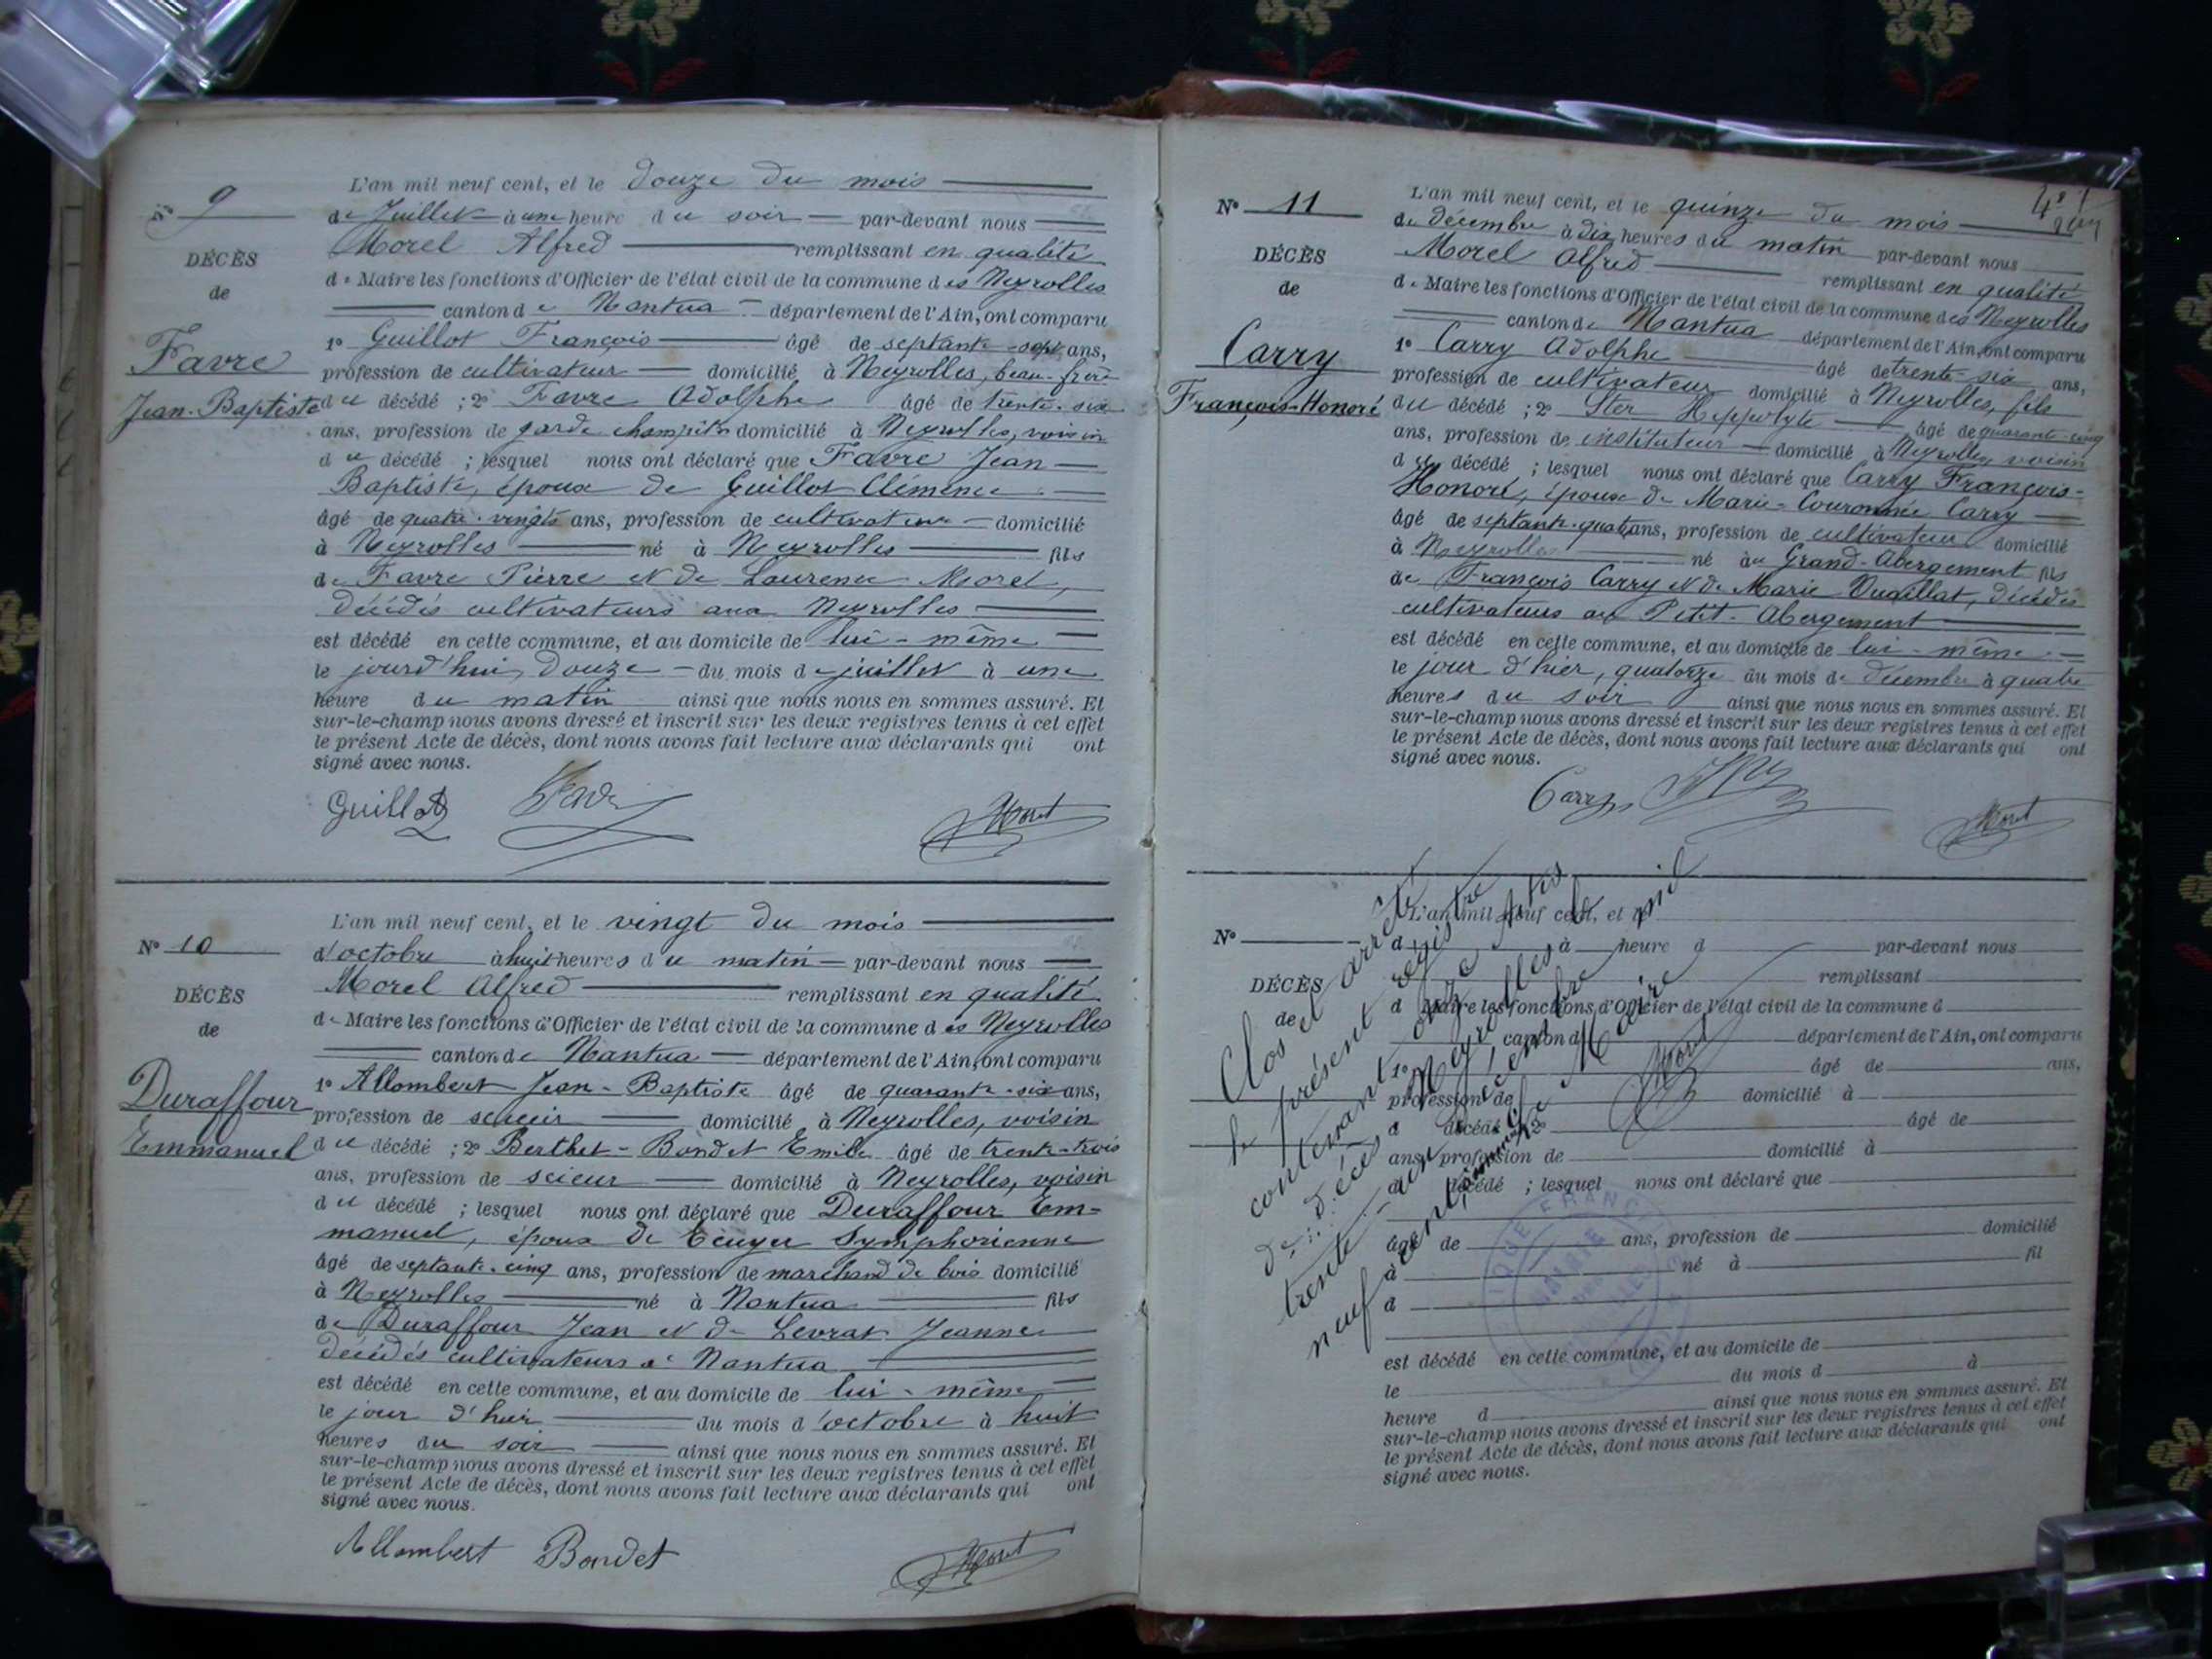 N° 9
DÉCÈS
de
Favre
Jean-Baptiste
L'an mil neuf cent, et le douze du mois
de Juillet à une heure du soir par-devant nous
Morel Alfred remplissant en qualité
de Maire les fonctions d'Officier de l'état civil de la commune des Neyrolles
canton de Nantua département de l'Ain, ont comparu
1° Guillot François âgé de septante-sept ans,
profession de cultivateur domicilié à Neyrolles, beau-frère
du décédé ; 2° Favre Adolphe âgé de trente-six
ans, profession de garde champêtre domicilié à Neyrolles, voisin
du décédé ; lesquel nous ont déclaré que Favre Jean
Baptiste, époux de Guillot Clémence
âgé de quatre-vingts ans, profession de cultivateur domicilié
à Neyrolles né à Neyrolles fils
de Favre Pierre et de Laurence Morel,
décédés cultivateurs aux Neyrolles
est décédé en cette commune, et au domicile de lui-même
le jourd'hui, douze du mois de juillet à une
heure du matin ainsi que nous nous en sommes assuré. Et
sur-le-champ nous avons dressé et inscrit sur les deux registres tenus à cet effet
le présent Acte de décès, dont nous avons fait lecture aux déclarants qui ont
signé avec nous.
Guillot Favre Morel
N° 10
DÉCÈS
de
Duraffour
Emmanuel
L'an mil neuf cent, et le vingt du mois
d'octobre à huit heures du matin par-devant nous
Morel Alfred remplissant en qualité
de Maire les fonctions d'Officier de l'état civil de la commune des Neyrolles
canton de Nantua département de l'Ain, ont comparu
1° Allombert Jean-Baptiste âgé de quarante-six ans,
profession de scieur domicilié à Neyrolles, voisin
du décédé ; 2° Berthet-Bondet Emile âgé de trente-trois
ans, profession de scieur domicilié à Neyrolles, voisin
du décédé ; lesquel nous ont déclaré que Duraffour Em-
manuel, époux de Ecuyer Symphorienne
âgé de septante-cinq ans, profession de marchand de bois domicilié
à Neyrolles né à Nantua fils
de Duraffour Jean et de Levrat Jeanne
décédés cultivateurs à Nantua
est décédé en cette commune, et au domicile de lui-même
le jour d'hier du mois d'octobre à huit
heures du soir ainsi que nous nous en sommes assuré. Et
sur-le-champ nous avons dressé et inscrit sur les deux registres tenus à cet effet
le présent Acte de décès, dont nous avons fait lecture aux déclarants qui ont
signé avec nous.
Allombert Bondet Morel
N° 11
DÉCÈS
de
Carry
François-Honoré
L'an mil neuf cent, et le quinze du mois
de décembre à dix heures du matin par-devant nous
Morel Alfred remplissant en qualité
de Maire les fonctions d'Officier de l'état civil de la commune des Neyrolles
canton de Nantua département de l'Ain, ont comparu
1° Carry Adolphe âgé de trente-six ans,
profession de cultivateur domicilié à Neyrolles, fils
du décédé ; 2° Ster Hyppolyte âgé de quarante-cinq
ans, profession de instituteur domicilié à Neyrolles, voisin
du décédé ; lesquel nous ont déclaré que Carry François-
Honoré, époux de Marie-Couronnée Carry
âgé de septante-quatre ans, profession de cultivateur domicilié
à Neyrolles né au Grand-Abergement fils
de François Carry et de Marie Ouaillat, décédés
cultivateurs au Petit-Abergement
est décédé en cette commune, et au domicile de lui-même
le jour d'hier, quatorze du mois de décembre à quatre
heures du soir ainsi que nous nous en sommes assuré. Et
sur-le-champ nous avons dressé et inscrit sur les deux registres tenus à cet effet
le présent Acte de décès, dont nous avons fait lecture aux déclarants qui ont
signé avec nous.
Carry Morel
N°
DÉCÈS
de
L'an mil neuf cent, et le
d à heure d par-devant nous
remplissant
d Maire les fonctions d'Officier de l'état civil de la commune d
canton d département de l'Ain, ont comparu
1° âgé de ans,
profession de domicilié à
d décédé ; 2° âgé de
ans, profession de domicilié à
d décédé ; lesquel nous ont déclaré que
âgé de ans, profession de domicilié
à né à fil
d
est décédé en cette commune, et au domicile de
le du mois d à
heure d ainsi que nous nous en sommes assuré. Et
sur-le-champ nous avons dressé et inscrit sur les deux registres tenus à cet effet
le présent Acte de décès, dont nous avons fait lecture aux déclarants qui ont
signé avec nous.
Clos et arrêté
le présent registre
contenant onze actes
de décès Neyrolles le
trente-un décembre mil
neuf cent,
Le Maire
Morel